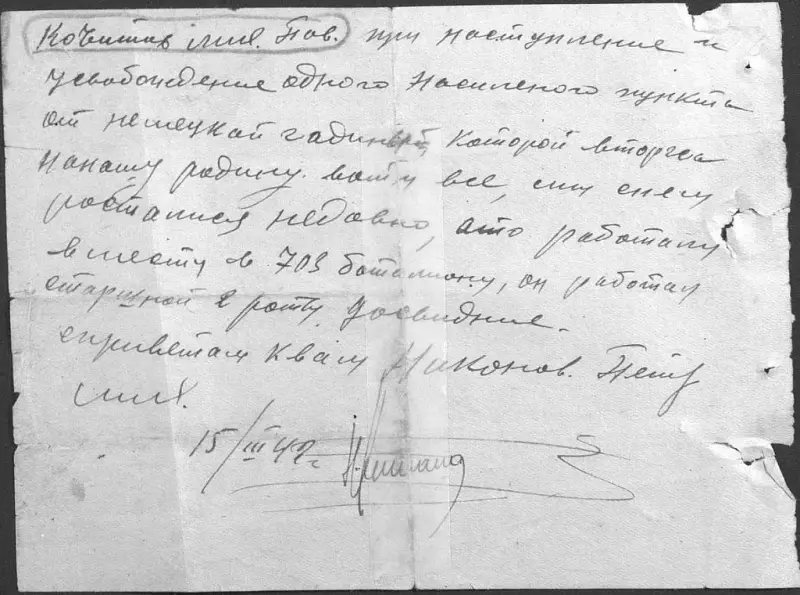 Кочетав мих. Пав. при наступление и
усвобождение одного населеного пункта
от немецкой гадины, которой вторгся
на нашу родину. вот и все, мы снем
росталися недовно, ато работали
вместу в 703 баталиону, он работал
старшной 2 роты. Досвидание.
сприветам Квам Никонов. Петр
мих.
15/III 42 г.